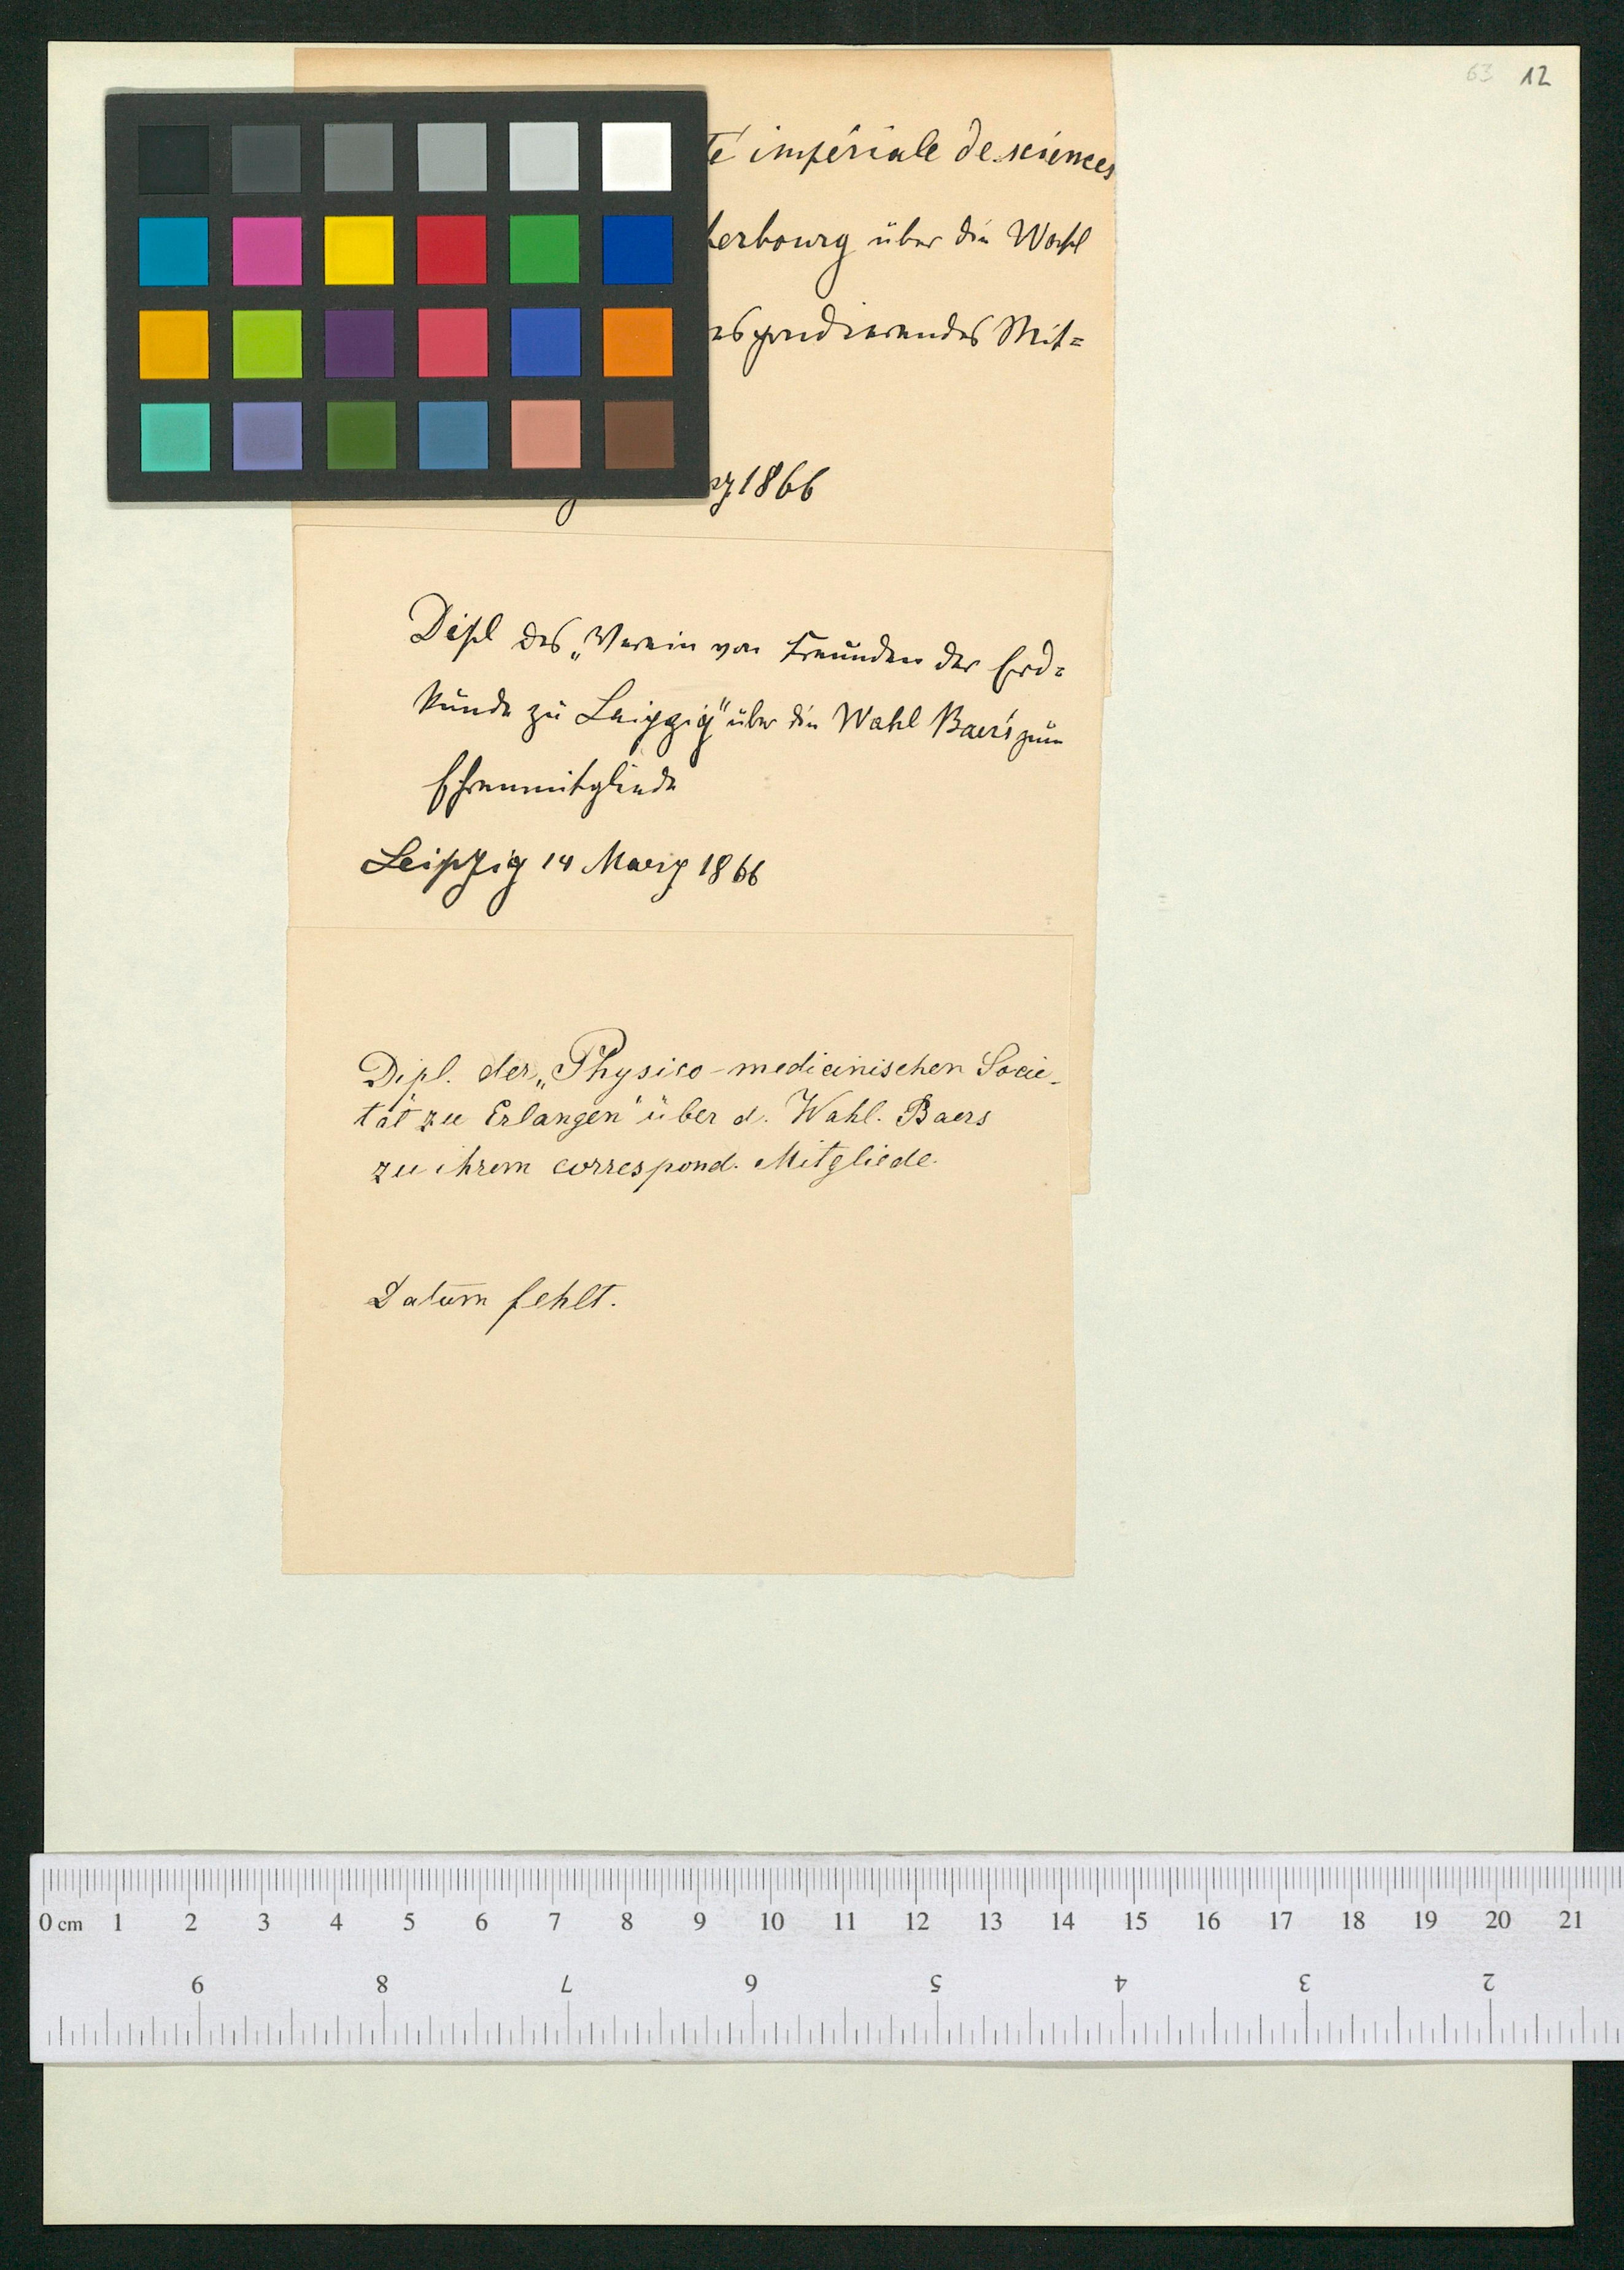 63 12
té impériale de sciences
herbourg über die Wahl
espondierendes Mit=
rz 1866
Dipl des „Verein von Freunden der Erd=
kunde zu Leipzig" über die Wahl Baer's zum
Ehrenmitgliede
Leipzig 14 Maerz 1866
Dipl. der „Physico-medicinischen Socie-
tät zu Erlangen" über d. Wahl. Baers
zu ihrem correspond. Mitgliede.
Datum fehlt.
0 cm 1 2 3 4 5 6 7 8 9 10 11 12 13 14 15 16 17 18 19 20 21
9 8 7 6 5 4 3 2